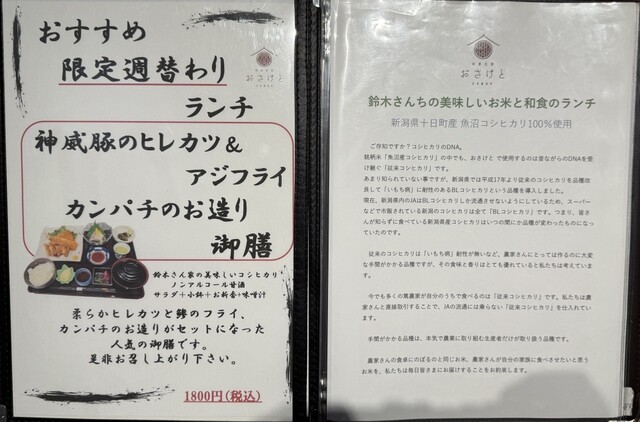 おすすめ
限定週替わり
ランチ
神威豚のヒレカツ&
アジフライ
カンパチのお造り
御膳
鈴木さん家の美味しいコシヒカリ
ノンアルコール甘酒
サラダ+小鉢+お新香+味噌汁
柔らかヒレカツと鯵のフライ、
カンパチのお造りがセットになった
人気の御膳です。
是非お召し上がり下さい。
1800円(税込)
おさけと
おさけと
鈴木さんちの美味しいお米と和食のランチ
新潟県十日町産 魚沼コシヒカリ100%使用
ご存知ですか?コシヒカリのDNA。
銘柄米「魚沼産コシヒカリ」の中でも、おさけと で使用するのは昔ながらのDNAを受
け継ぐ「従来コシヒカリ」です。
あまり知られていない事ですが、新潟県では平成17年より従来のコシヒカリを品種改
良して「いもち病」に耐性のあるBLコシヒカリという品種を導入しました。
現在、新潟県内のJAはBLコシヒカリしか流通させないようにしているため、スーパー
などで市販されている新潟のコシヒカリは全て「BLコシヒカリ」です。つまり、皆さ
んが知らずに食べている新潟県産コシヒカリはいつの間にか品種が変わったものになっ
ていたのです。
従来のコシヒカリは「いもち病」耐性が無いなど、農家さんにとっては作るのに大変
な手間がかかる品種ですが、その食味と香りはとても優れていると私たちは考えていま
す。
今でも多くの農家が自分のうちで食べるのは「従来コシヒカリ」です。私たちは農
家さんと直接取引することで、JAの流通には乗らない「従来コシヒカリ」を仕入れてい
ます。
手間がかかる品種は、本気で農業に取り組む生産者だけが取り扱う品種です。
農家さんの食卓にのぼるのと同じお米、農家さんが自分の家族に食べさせたいと思う
お米を、私たちは毎日皆さまにお届けすることをお約束します。